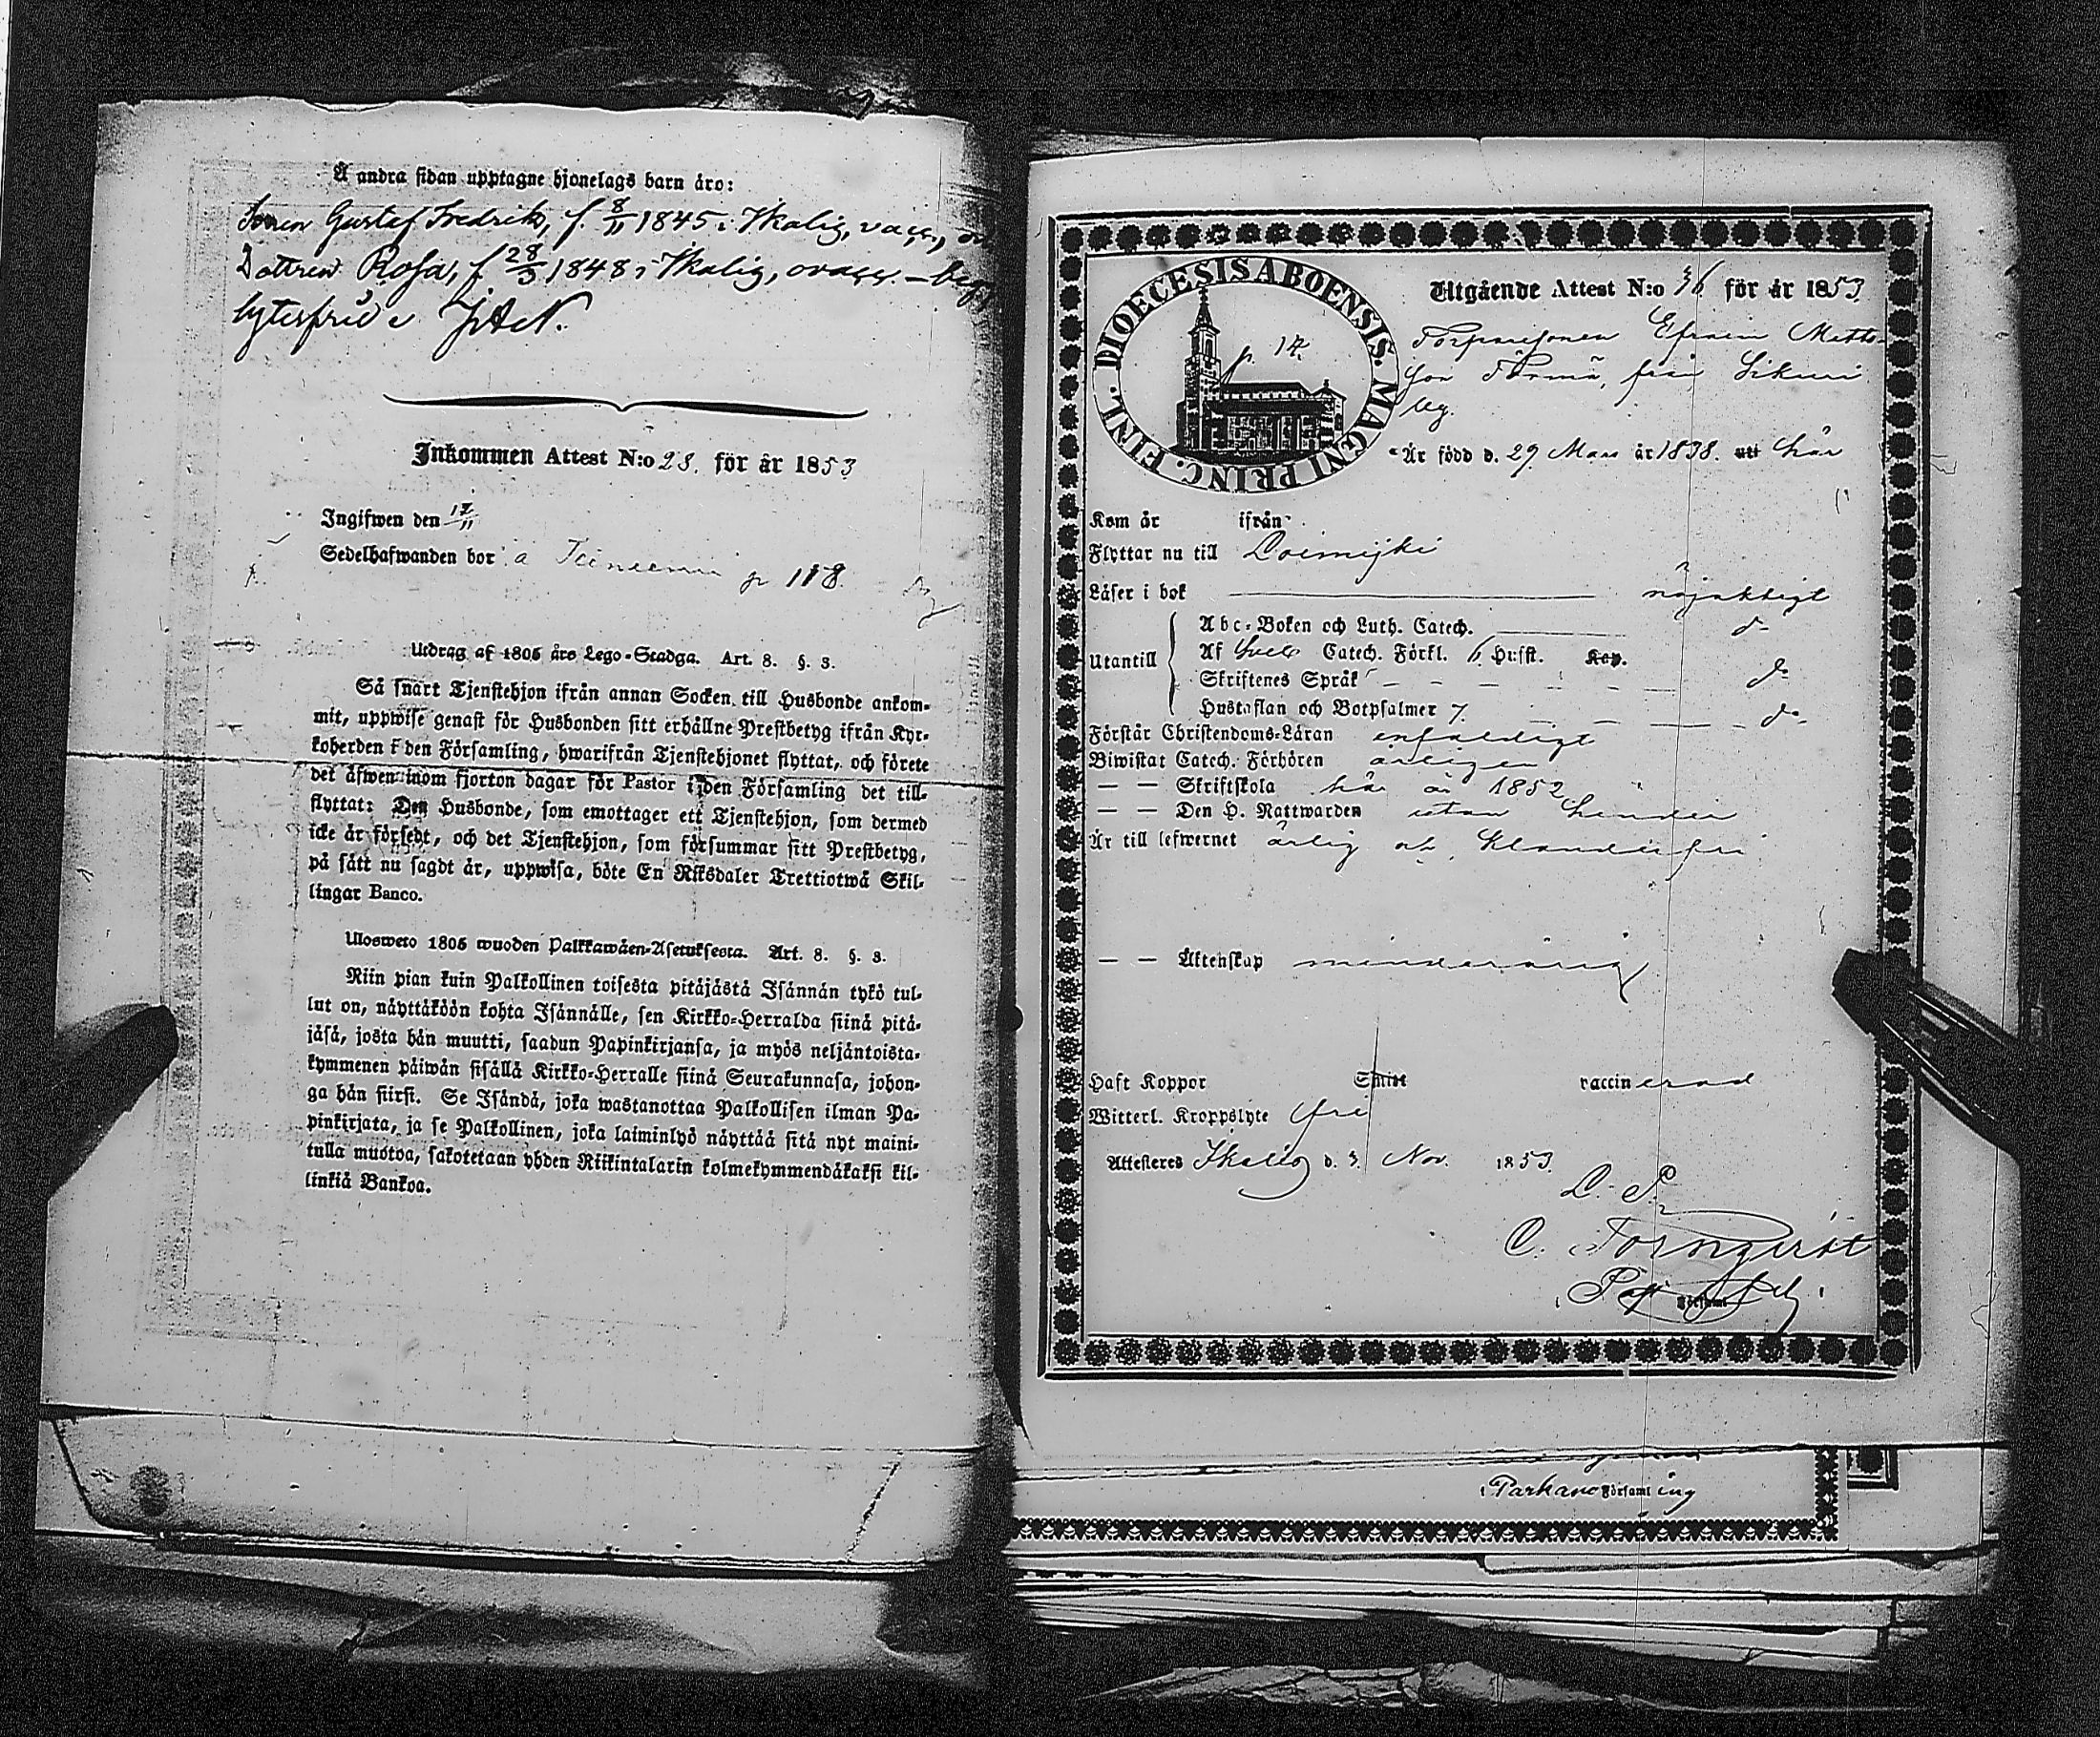 Å andra sidan upptagne hjonelags barn äro:
Sonen Gustaf Fredrik, f. 8/11 1845 i Ikalis, vacc.,
Dottren Rosa, f. 28/3 1848 i Ikalis, ovacc. –
lytesfrie
Inkommen Attest N:o 28. för år 1853
Ingifwen den 12/11
Sedelhafwanden bor å p 118.
Utdrag af 1805 års Lego-Stadga. Art. 8. §. 3.
Så snart Tjenstehjon ifrån annan Socken till Husbonde ankom-
mit, uppwise genast för Husbonden sitt erhållne Prestbetyg ifrån Kyr-
koherden i den Församling, hwarifrån Tjenstehjonet flyttat, och förete
det äfwen inom fjorton dagar för Pastor i den Församling det till-
flyttat: Den Husbonde, som emottager ett Tjenstehjon, som dermed
icke är försedt, och det Tjenstehjon, som försummar sitt Prestbetyg,
på sätt nu sagdt är, uppwisa, böte En Riksdaler Trettiotwå Skil-
lingar Banco.
Ulosweto 1805 wuoden Palkkawäen-Asetuksesta. Art. 8. §. 3.
Niin pian kuin Palkollinen toisesta pitäjästä Isännän tykö tul-
lut on, näyttäköön kohta Isännälle, sen Kirkko-Herralda siinä pitä-
jäsä, josta hän muutti, saadun Papinkirjansa, ja myös neljäntoista-
kymmenen päiwän sisällä Kirkko-Herralle siinä Seurakunnasa, johon-
ga hän siirsi. Se Isändä, joka wastanottaa Palkollisen ilman Pa-
pinkirjata, ja se Palkollinen, joka laiminlyö näyttää sitä nyt maini-
tulla muotoa, sakotetaan yhden Riikintalarin kolmekymmendäkaksi kil-
linkiä Bankoa.
DIOECESIS ABOENSIS. MAGNI PRINC. FINL.
p. 12.
Utgående Attest N:o 36 för år 1853
Torparesonen Efraim Matts-
son från Sikuri
by.
Är född d. 29 Mars år 1838. att här
Kom år ifrån
Flyttar nu till Loimijki
Läser i bok nöjaktigt
Utantill
Abc-Boken och Luth. Catech. d:o
Af Sveb. Catech. Förkl. 6 Husst. Kap.
Skriftenes Språk d:o
Hustaflan och Botpsalmer 7. d:o
Förstår Christendoms-Läran enfaldigt
Biwistat Catech. Förhören årligen
— — Skriftskola här år 1852
— — Den H. Nattwarden utan hinder
Är till lefwernet ärlig och klanderfri
— — Äktenskap minderårig
Haft Koppor Smitt vaccinerad
Witterl. Kroppslyte fri
Attesteras Ikalis d. 3 Nov. 1853.
L. S.
C. Tornqvist
Församl
i Parkano Församling